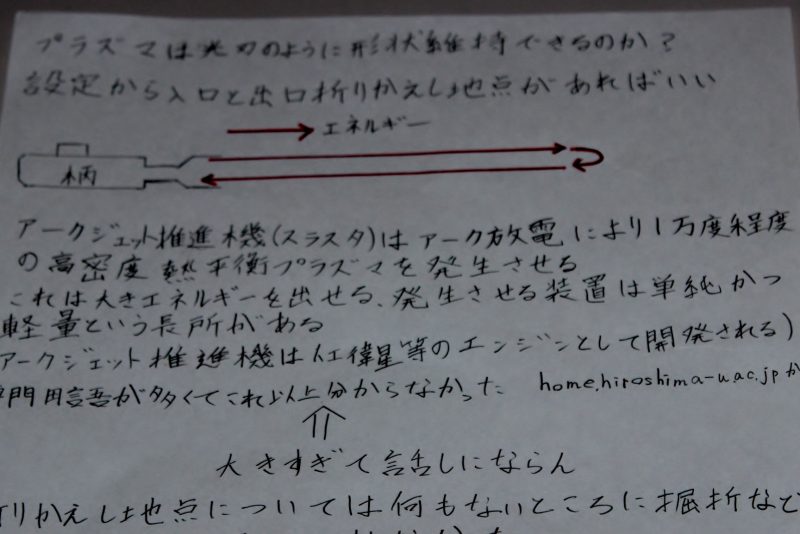 プラズマは光刃のように形状維持できるのか?
設定から入口と出口折りかえし地点があればいい
エネルギー
柄
アークジェット推進機(スラスタ)はアーク放電により1万度程度
の高密度熱平衡プラズマを発生させる
これは大きエネルギーを出せる、発生させる装置は単純かつ
軽量という長所がある
アークジェット推進機は人工衛星等のエンジンとして開発される)
専門用語が多くてこれ以上分からなかった home.hiroshima-u.ac.jpか
大きすぎて話しにならん
りかえし地点については何もないところに屈折など